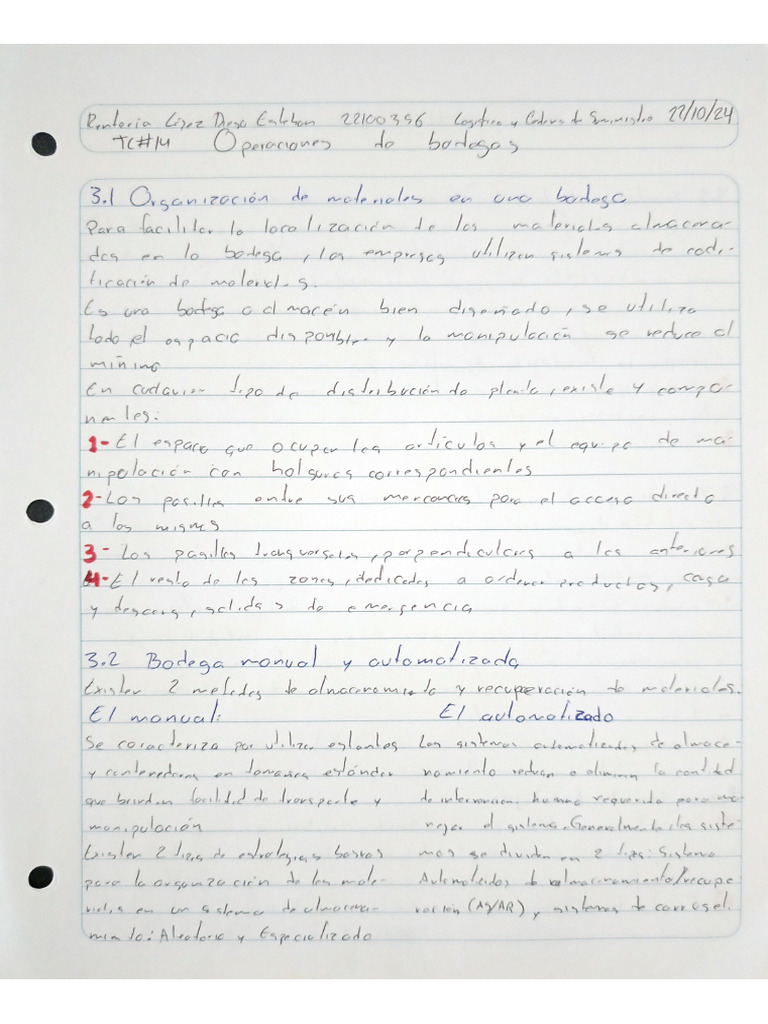 Rentoria López Diego Esteban 22100356 Logistica y Cadena de Suministro 22/10/24
TC#14 Operaciones de bodegas
3.1 Organización de materiales en una bodega
Para facilitar la localización de los materiales almacena-
dos en la bodega, las empresas utilizan sistemas de codi-
ficación de materiales.
Es una bodega o almacén bien diseñado, se utiliza
todo el espacio disponible y la manipulación se reduce al
mínino
En cualquier tipo de distribución de planta, existe y compo-
nentes:
1- El espacio que ocupen los artículos y el equipo de ma-
nipolación con holguras correspondientes
2- Los pasillos entre sus mercancias para el acceso directo
a los mismos
3- Los pasillos transversales, perpendiculares a los anteriores
4- El resto de las zonas, dedicadas a ordenar productos, carga
y descarg, salidas de emergencia
3.2 Bodega manual y automatizada
Existen 2 metodos de almacenamiento y recuperación de materiales.
El manual:
Se caracteriza por utilizar estantes
y contenedores en tamaños estándar
que brindan facilidad de transporte y
manipulación
Existen 2 tipos de estrategias basicas
para la organización de los mate-
riales en un sistema de almacena-
miento: Aleatoria y Especializado
El automatizado
Los sistemas automatizados de almace-
namiento reducen o eliminan la cantidad
de intervencion humana requerida para ma-
nejar el sistema. Generalmente los siste-
mas se dividen en 2 tipos: Sistema
Automatizados de almacenamiento/recupe
ración (AS/AR) y sistemas de carrusel.